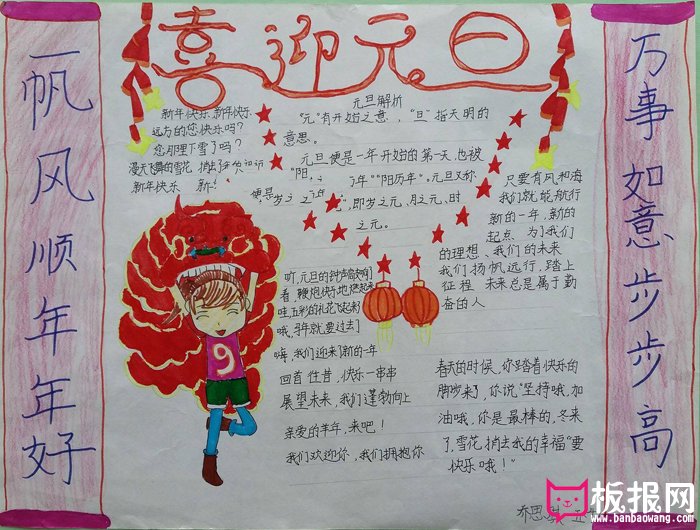 喜迎元旦
一帆风顺年年好
万事如意步步高
新年快乐、新年快乐
远方的您快乐吗?
您那里下雪了吗?
漫天飞舞的雪花
新年快乐 新
元旦解析
"元"有开始之意,"旦"指天明的
意思。
元旦便是一年开始的第一天,也被
"阳历年"。元旦又称
即岁之元、月之元、时
之元。
只要有风和海
我们就能航行
新的一年,新的
起点 为了我们
的理想、我们的未来
我们扬帆远行,踏上
征程 未来总是属于勤
奋的人
听,元旦的钟声敲响
看 鞭炮快乐地燃起来
哇,五彩的礼花飞起来
哦,羊年就要过去
嗨,我们迎来了新的一年
回首往昔,快乐一串串
展望未来,我们蓬勃向上
亲爱的羊年,来吧!
我们欢迎你,我们拥抱你
春天的时候,你踏着快乐的
脚步来了,你说"坚持哦,加
油哦,你是最棒的,冬来
了,雪花捎去我的幸福"要
快乐哦!"
9
乔思
板报网
www.banbaowang.com